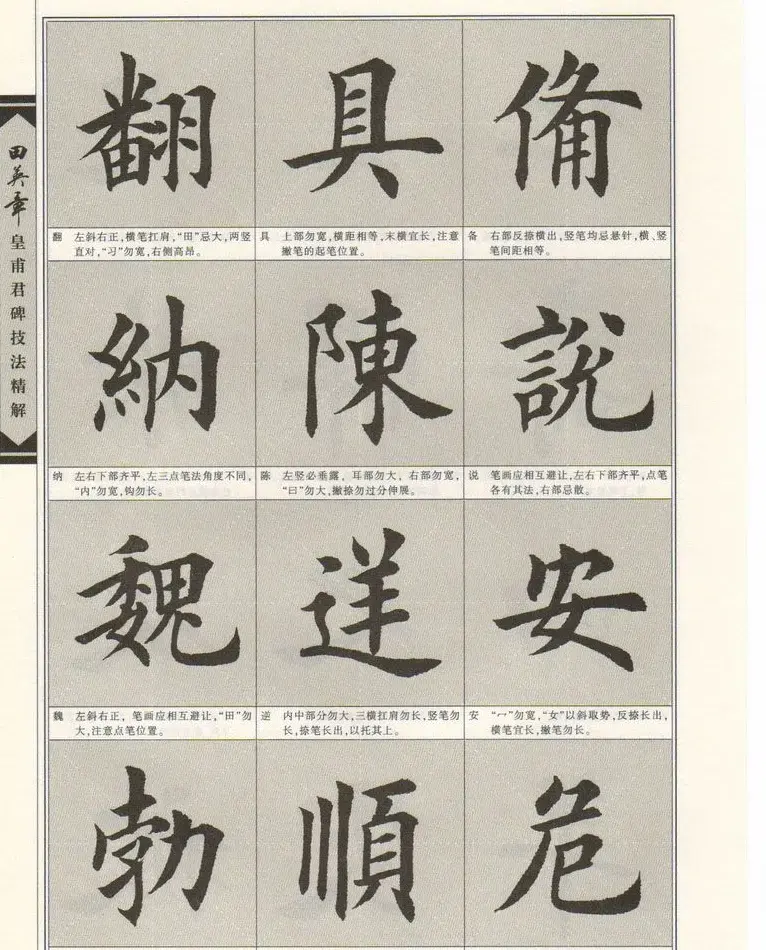 田英章
皇甫君碑技法精解
翻 具 備
翻 左斜右正，横笔扛肩，“田”忌大，两竖
直对，“习”勿宽，右侧高昂。
具 上部勿宽，横距相等，末横宜长，注意
撇笔的起笔位置。
备 右部反捺横出，竖笔均忌悬针，横、竖
笔间距相等。
納 陳 説
纳 左右下部齐平，左三点笔法角度不同，
“内”勿宽，钩勿长。
陈 左竖必垂露，耳部勿大，右部勿宽，
“曰”勿大，撇捺勿过分伸展。
说 笔画应相互避让，左右下部齐平，点笔
各有其法，右部忌散。
魏 逆 安
魏 左斜右正，笔画应相互避让，“田”勿
大，注意点笔位置。
逆 内中部分勿大，三横扛肩勿长，竖笔勿
长，捺笔长出，以托其上。
安 “冖”勿宽，“女”以斜取势，反捺长出，
横笔宜长，撇笔勿长。
勃 順 危